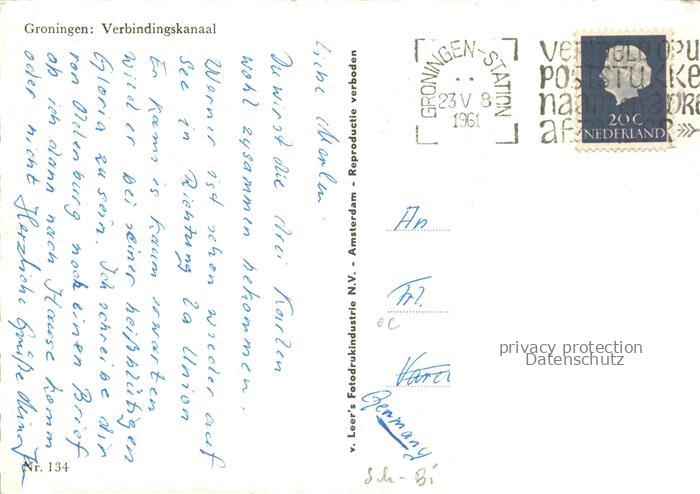 Groningen: Verbindingskanaal
Liebe Marlen.
Du wirst die drei Karten
wohl zusammen bekommen.
Werner ist schon wieder auf
See in Richtung La Union
Er kann es kaum erwarten
wieder bei seiner heißblütigen
Gloria zu sein. Ich schreibe dir
von Oldenburg noch einen Brief
ob ich dann nach Hause komm
oder nicht Herzliche Grüße deine
Nr. 134
v. Leer's Fotodrukindustrie N.V. - Amsterdam - Reproductie verboden
GRONINGEN-STATION
23 V 8
1961
POSTSTUKKE
20 C
NEDERLAND
An
Frl.
Varel
Germany
privacy protection
Datenschutz